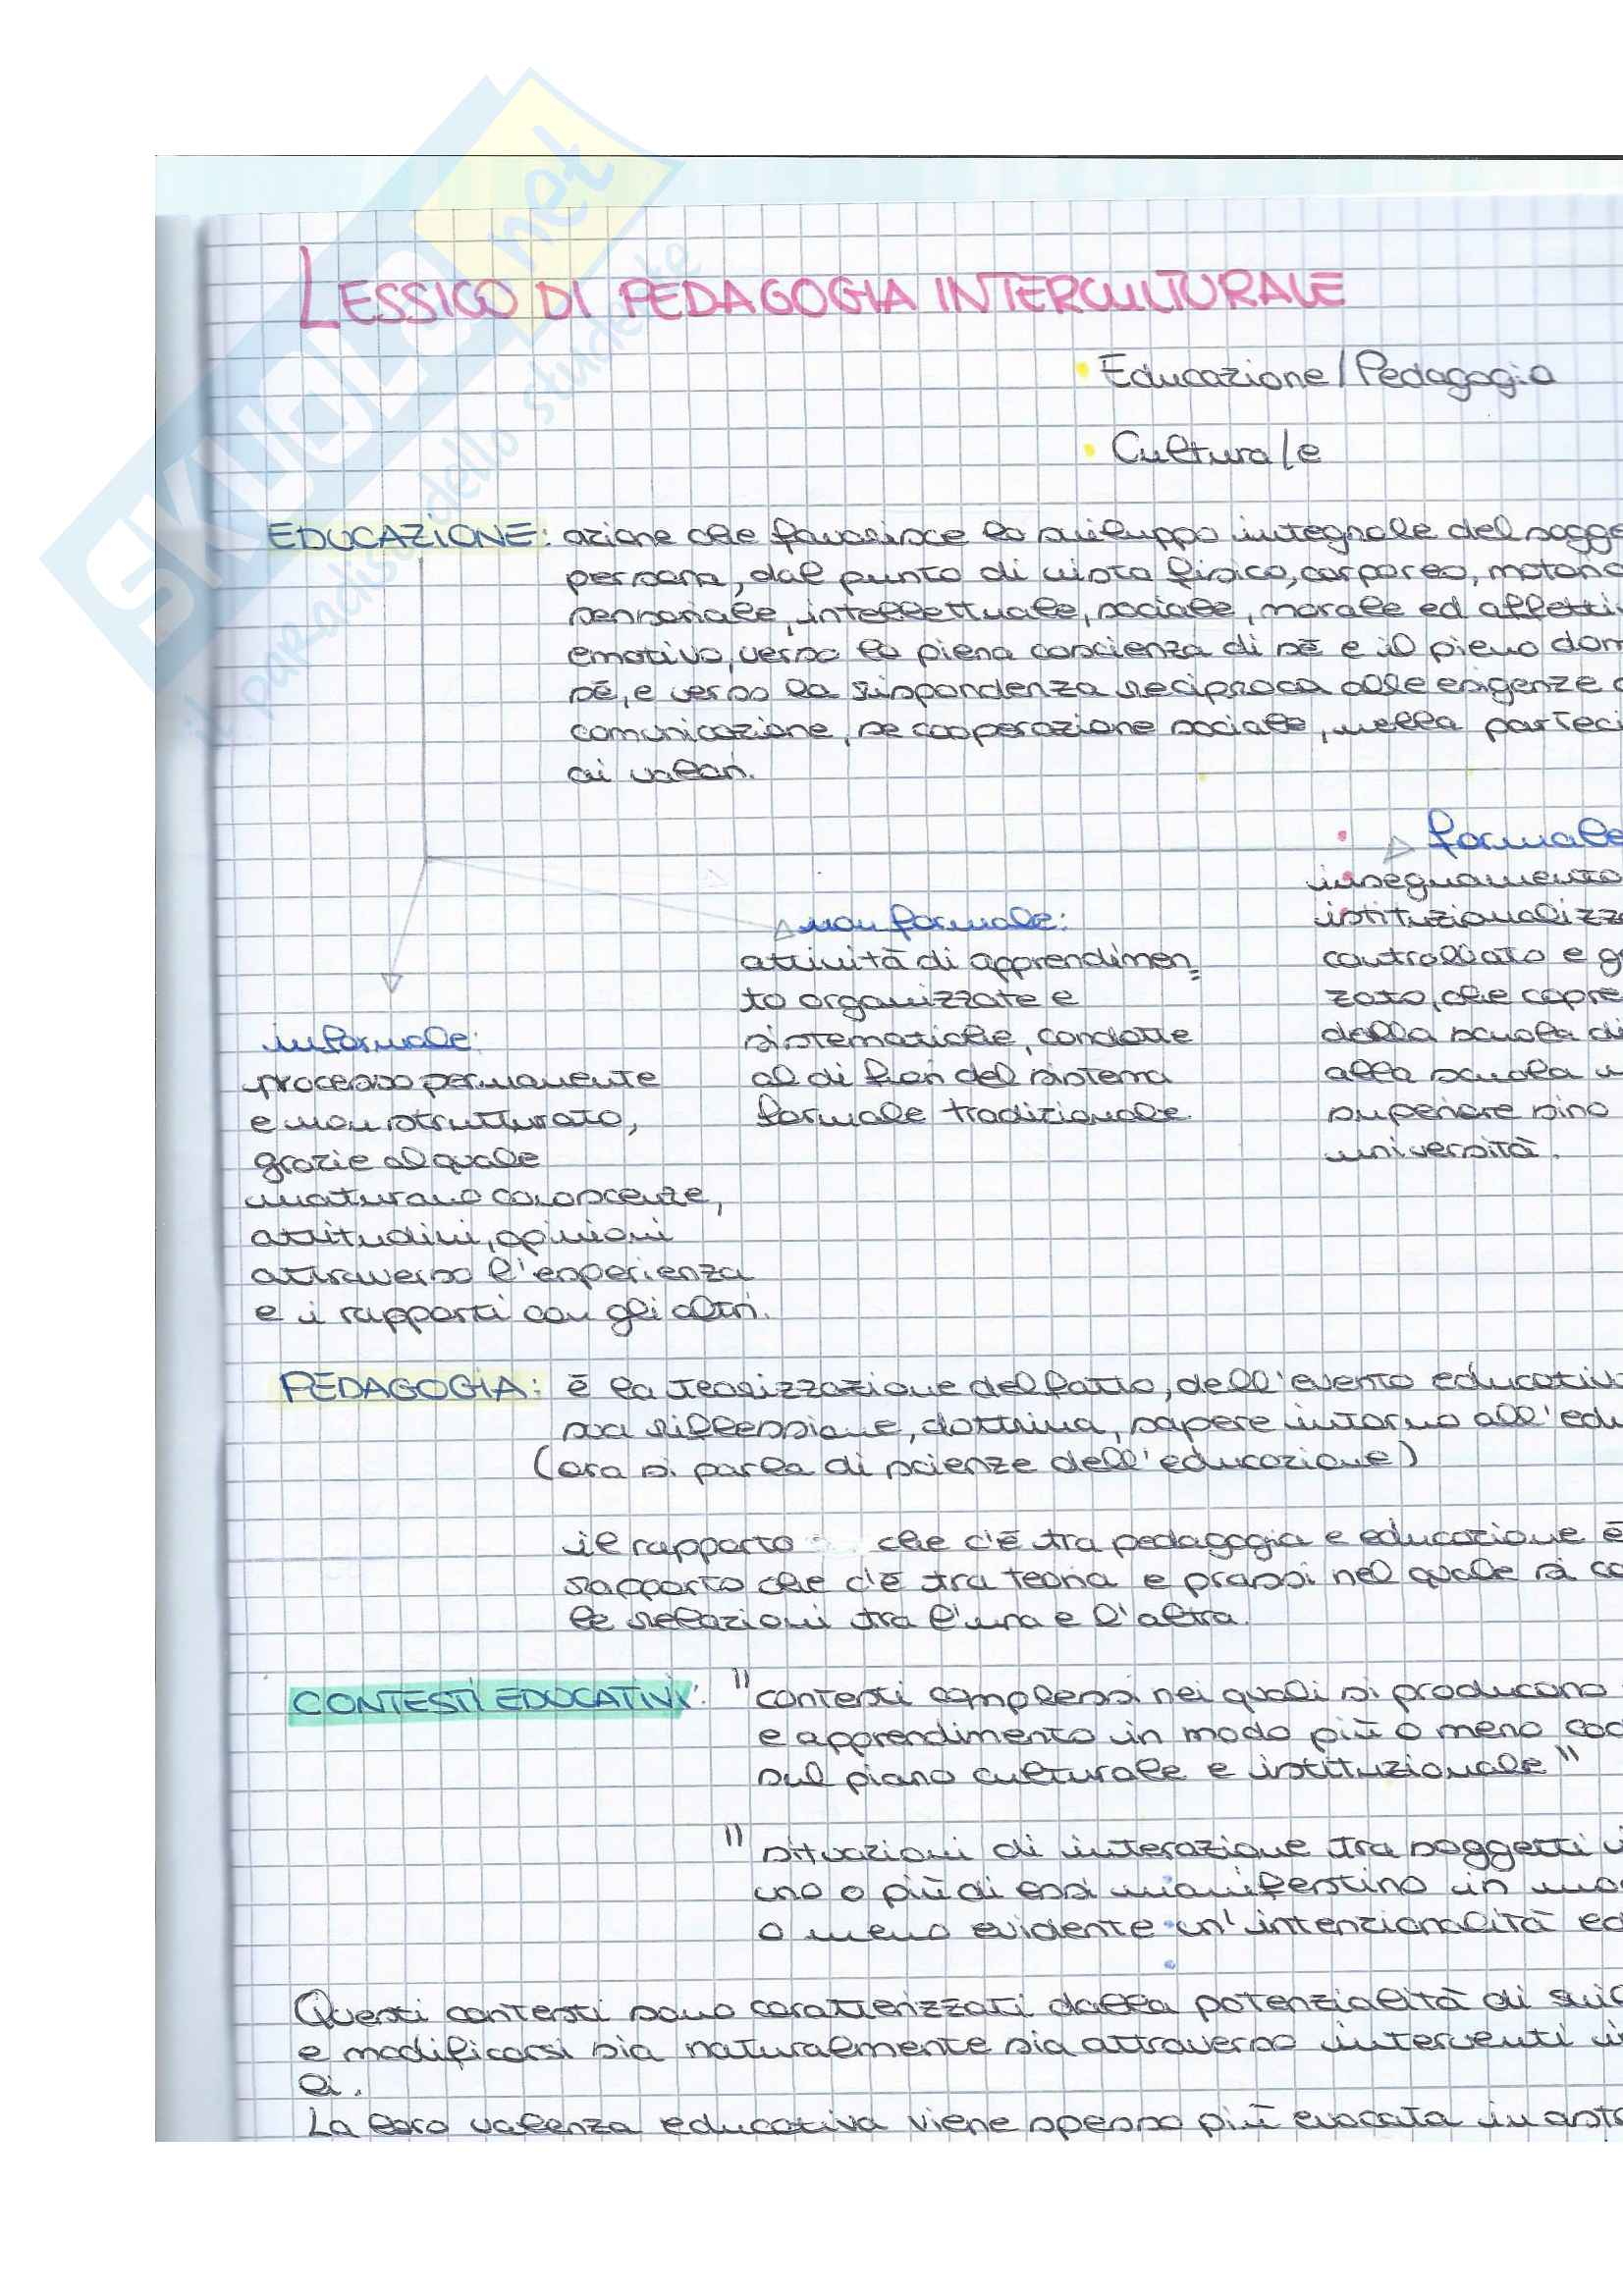 SKUOLA.net
il paradiso dello studente
LESSICO DI PEDAGOGIA INTERCULTURALE
• Educazione/Pedagogia
• Cultura/e
EDUCAZIONE: azione che favorisce lo sviluppo integrale del sogge
persona, dal punto di vista fisico, corporeo, motorio
sensoriale, intellettuale, sociale, morale ed affetti
emotivo, verso la piena coscienza di sè e il pieno dom
sè, e verso la rispondenza reciproca alle esigenze
comunicazione, se cooperazione sociale, nella parteci
ai valori.
formale
insegnamento
istituzionalizza
controllato e g
zato, che copre
dalla scuola di
alla scuola
superiore sino
università.
non formale:
attività di apprendimen=
to organizzate e
sistematiche, condotte
al di fuori del sistema
formale tradizionale.
informale:
processo permanente
e non strutturato,
grazie al quale
maturano conoscenze,
attitudini, opinioni
attraverso l'esperienza
e i rapporti con gli altri.
PEDAGOGIA: è la teorizzazione del fatto, dell'evento educativo
sia riflessione, dottrina, sapere intorno all'edu
(ora si parla di scienze dell'educazione)
il rapporto che c'è tra pedagogia e educazione è
rapporto che c'è tra teoria e prassi nel quale si co
le relazioni tra l'una e l'altra.
CONTESTI EDUCATIVI: "contesti complessi nei quali si producono
e apprendimento in modo più o meno cod
sul piano culturale e istituzionale"
"situazioni di interazione tra soggetti
uno o più di essi manifestino in mo
o meno evidente un'intenzionalità ed
Questi contesti sono caratterizzati dalla potenzialità di svil
e modificarsi sia naturalmente sia attraverso interventi
li.
La loro valenza educativa viene spesso più evocata in astr